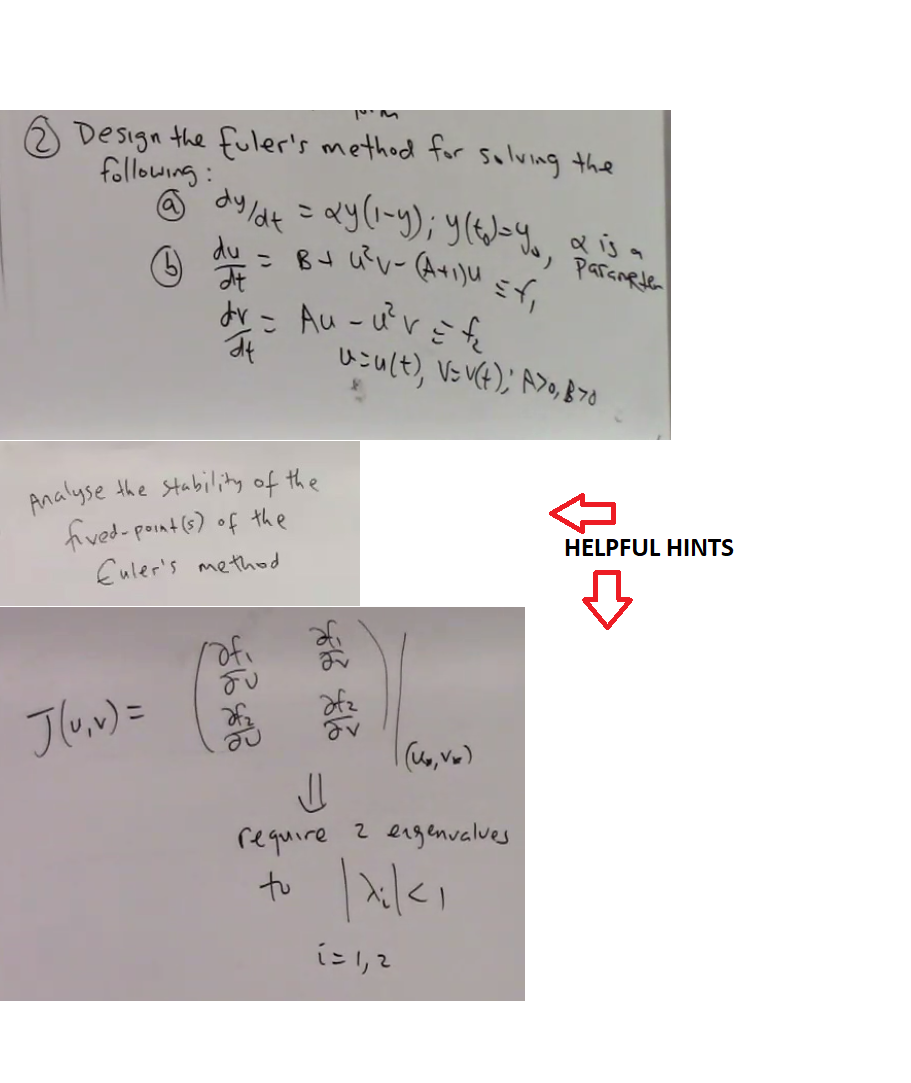 ② Design the Euler's method for solving the
following:
ⓐ dy/dt = αy(1-y); y(t₀)=y₀, α is a
Parameter
ⓑ du/dt = B + u²v - (A+1)u ≡ f₁
dv/dt = Au - u²v ≡ f₂
u=u(t), v=v(t); A>0, B>0
Analyse the stability of the
fixed-point(s) of the
Euler's method
HELPFUL HINTS
J(u,v) = ( ∂f₁/∂u ∂f₁/∂v
∂f₂/∂u ∂f₂/∂v ) | (u*,v*)
⇓
require 2 eigenvalues
to |λᵢ| < 1
i = 1, 2